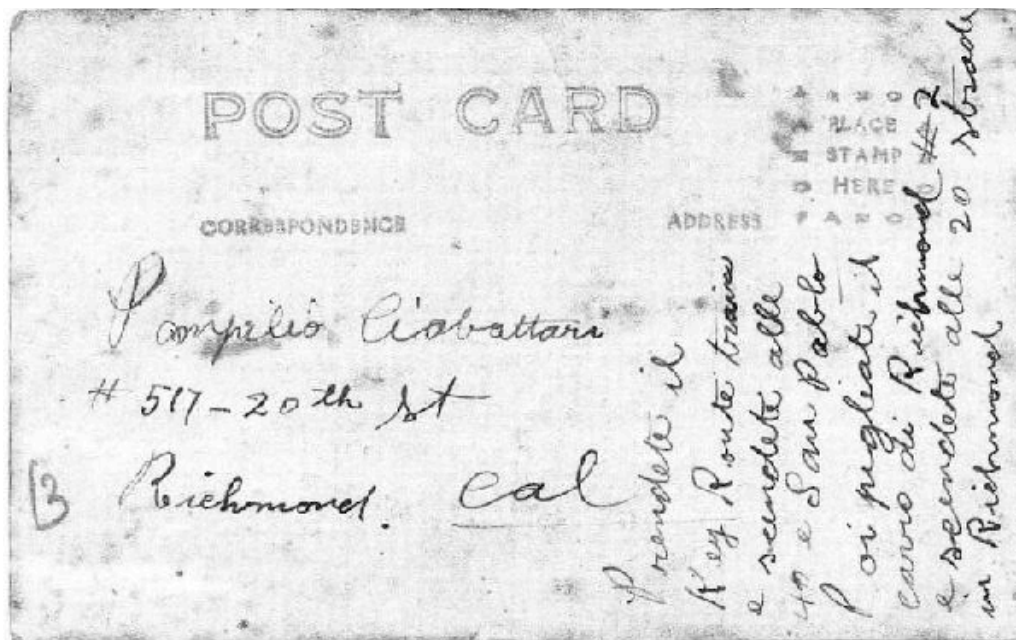 POST CARD
PLACE
STAMP
HERE
CORRESPONDENCE
ADDRESS
Pompilio Ciabattari
# 517-20th St
Richmond. Cal
B
Prendete il
Key Route train
e scendete alle
40 e San Pablo
Poi pigliate il
carro di Richmond # 2
e scendete alle 20 strade
in Richmond